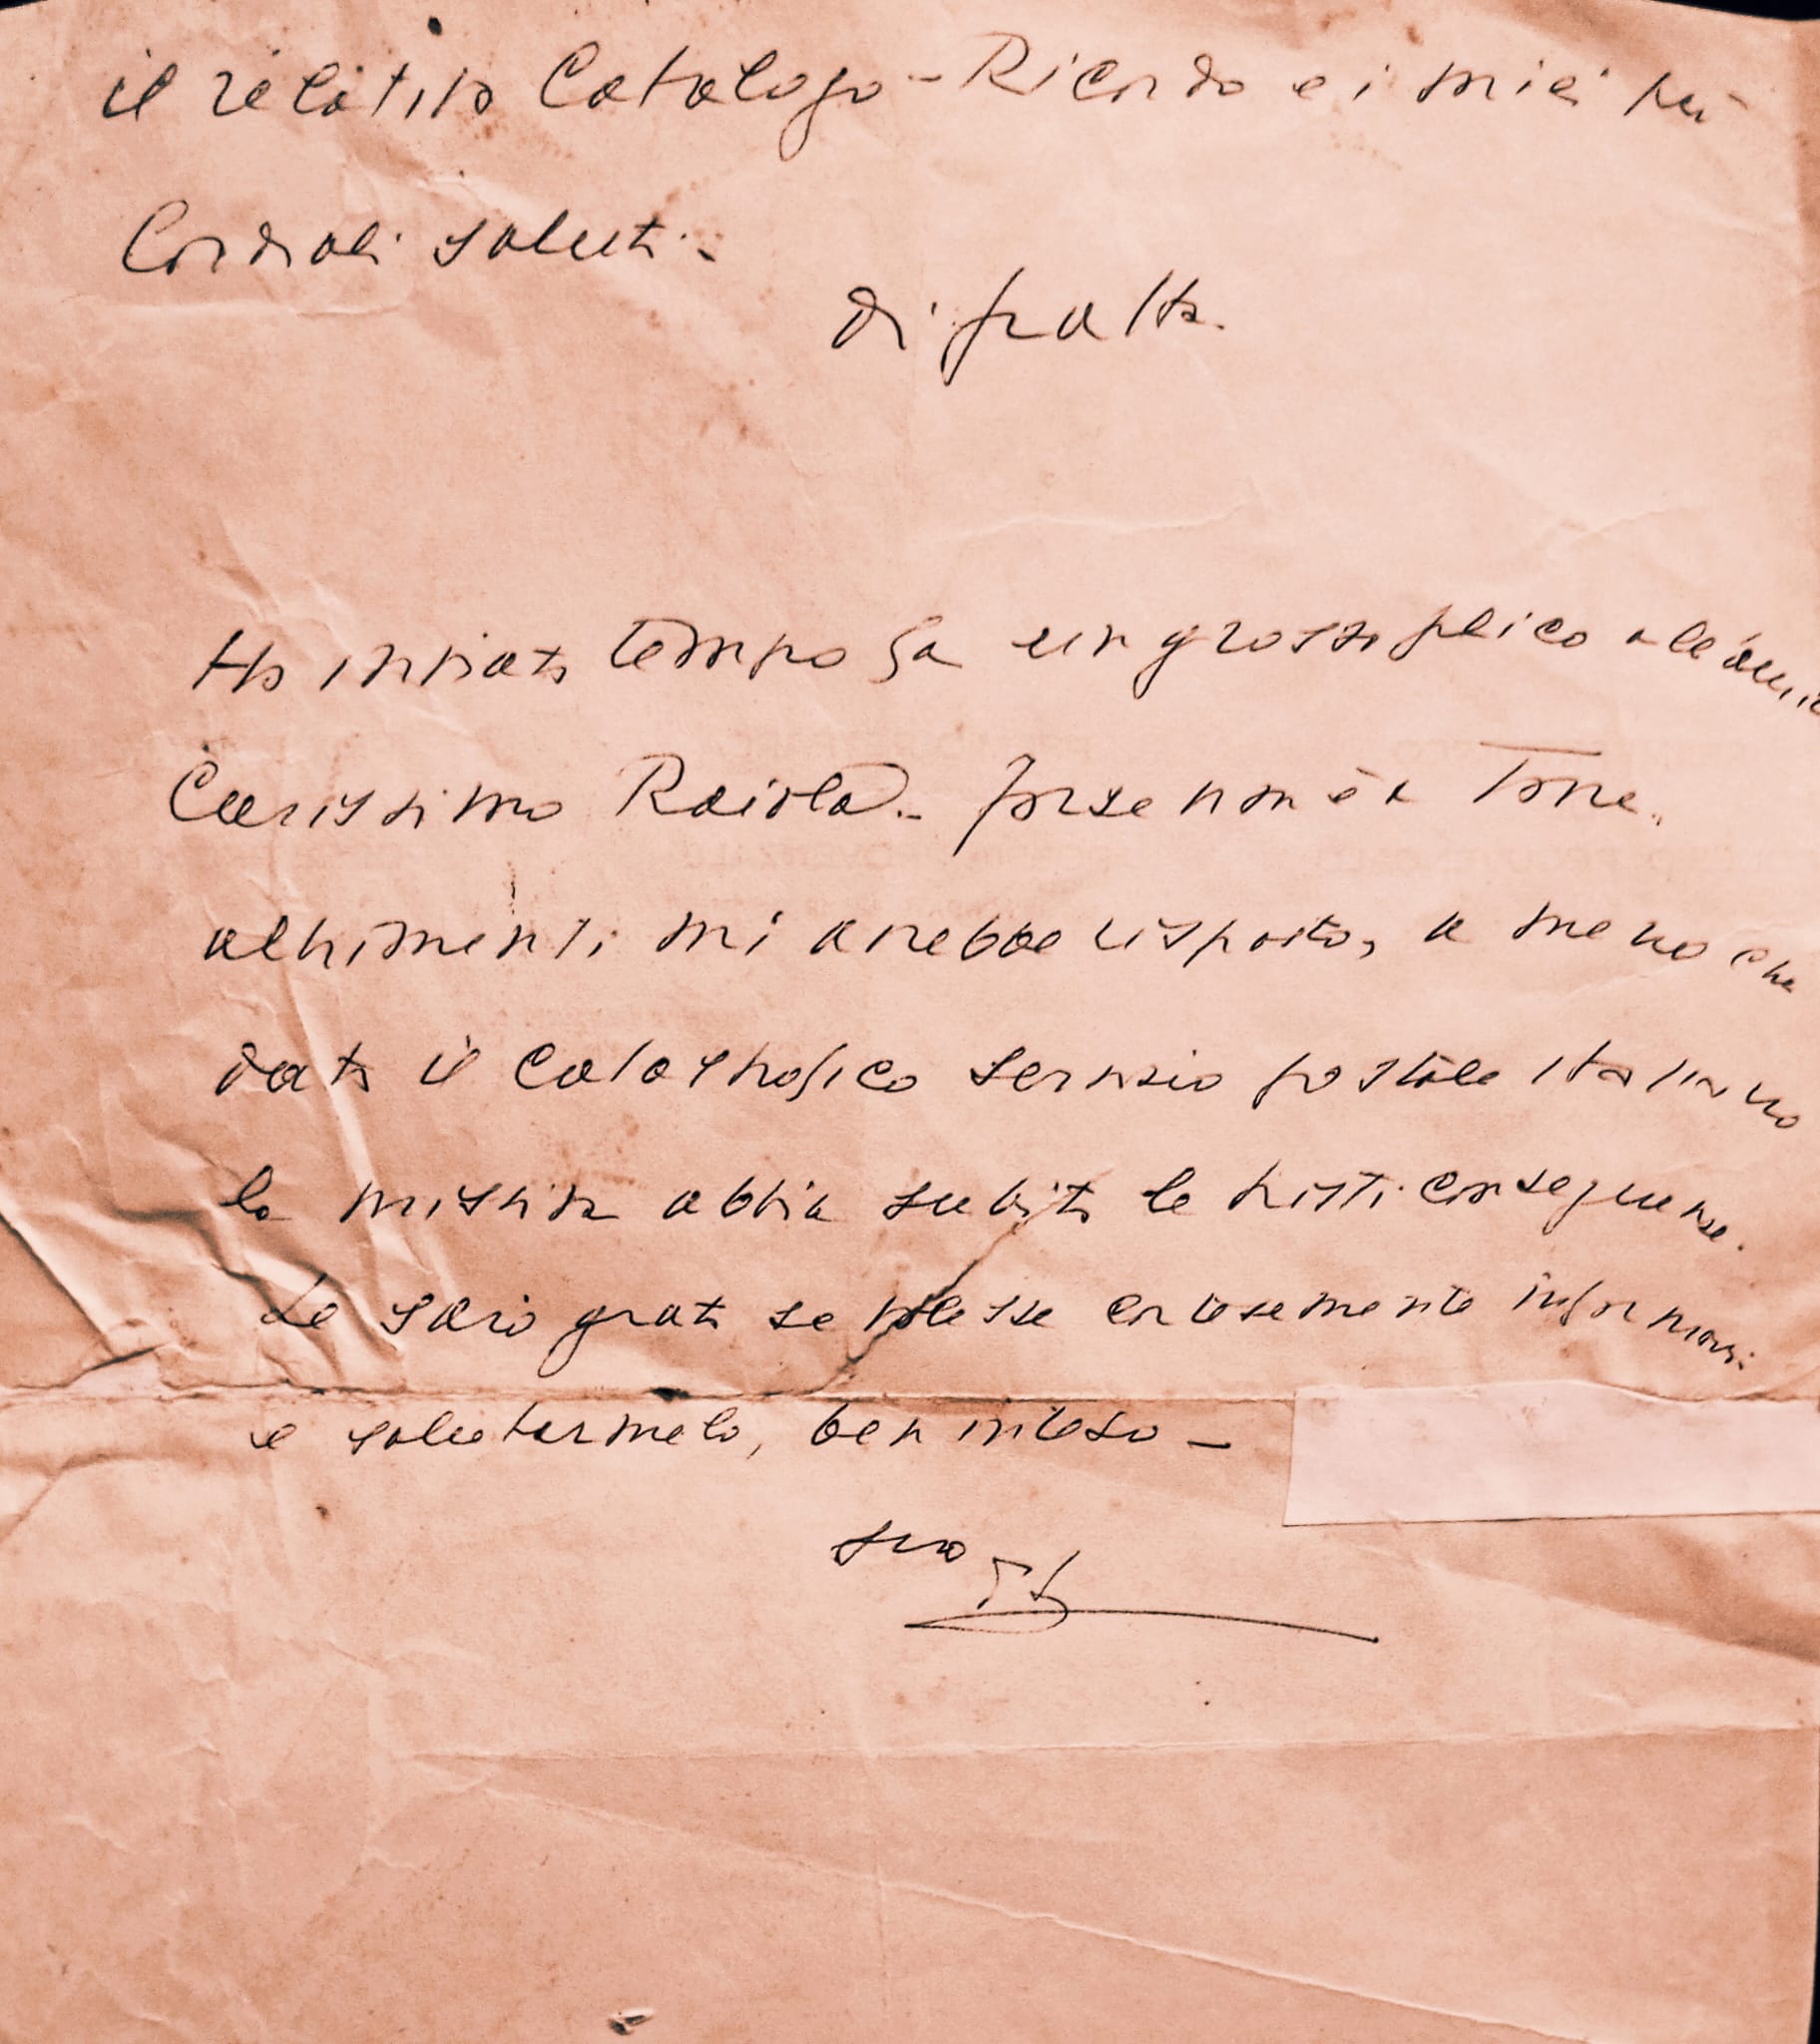 il relativo Catalogo - Ricordo e i miei più
Cordiali saluti -
di fratta.
Ho inviato tempo fa un grosso plico all'amico
Carissimo Raiola. - forse non è a Torre.
altrimenti mi avrebbe risposto, a meno che
dato il catastrofico servizio postale italiano
la missiva abbia subito le tristi conseguenze.
Le sarò grato se volesse cortesemente informarsi
e salutarmelo, ben inteso -
suo